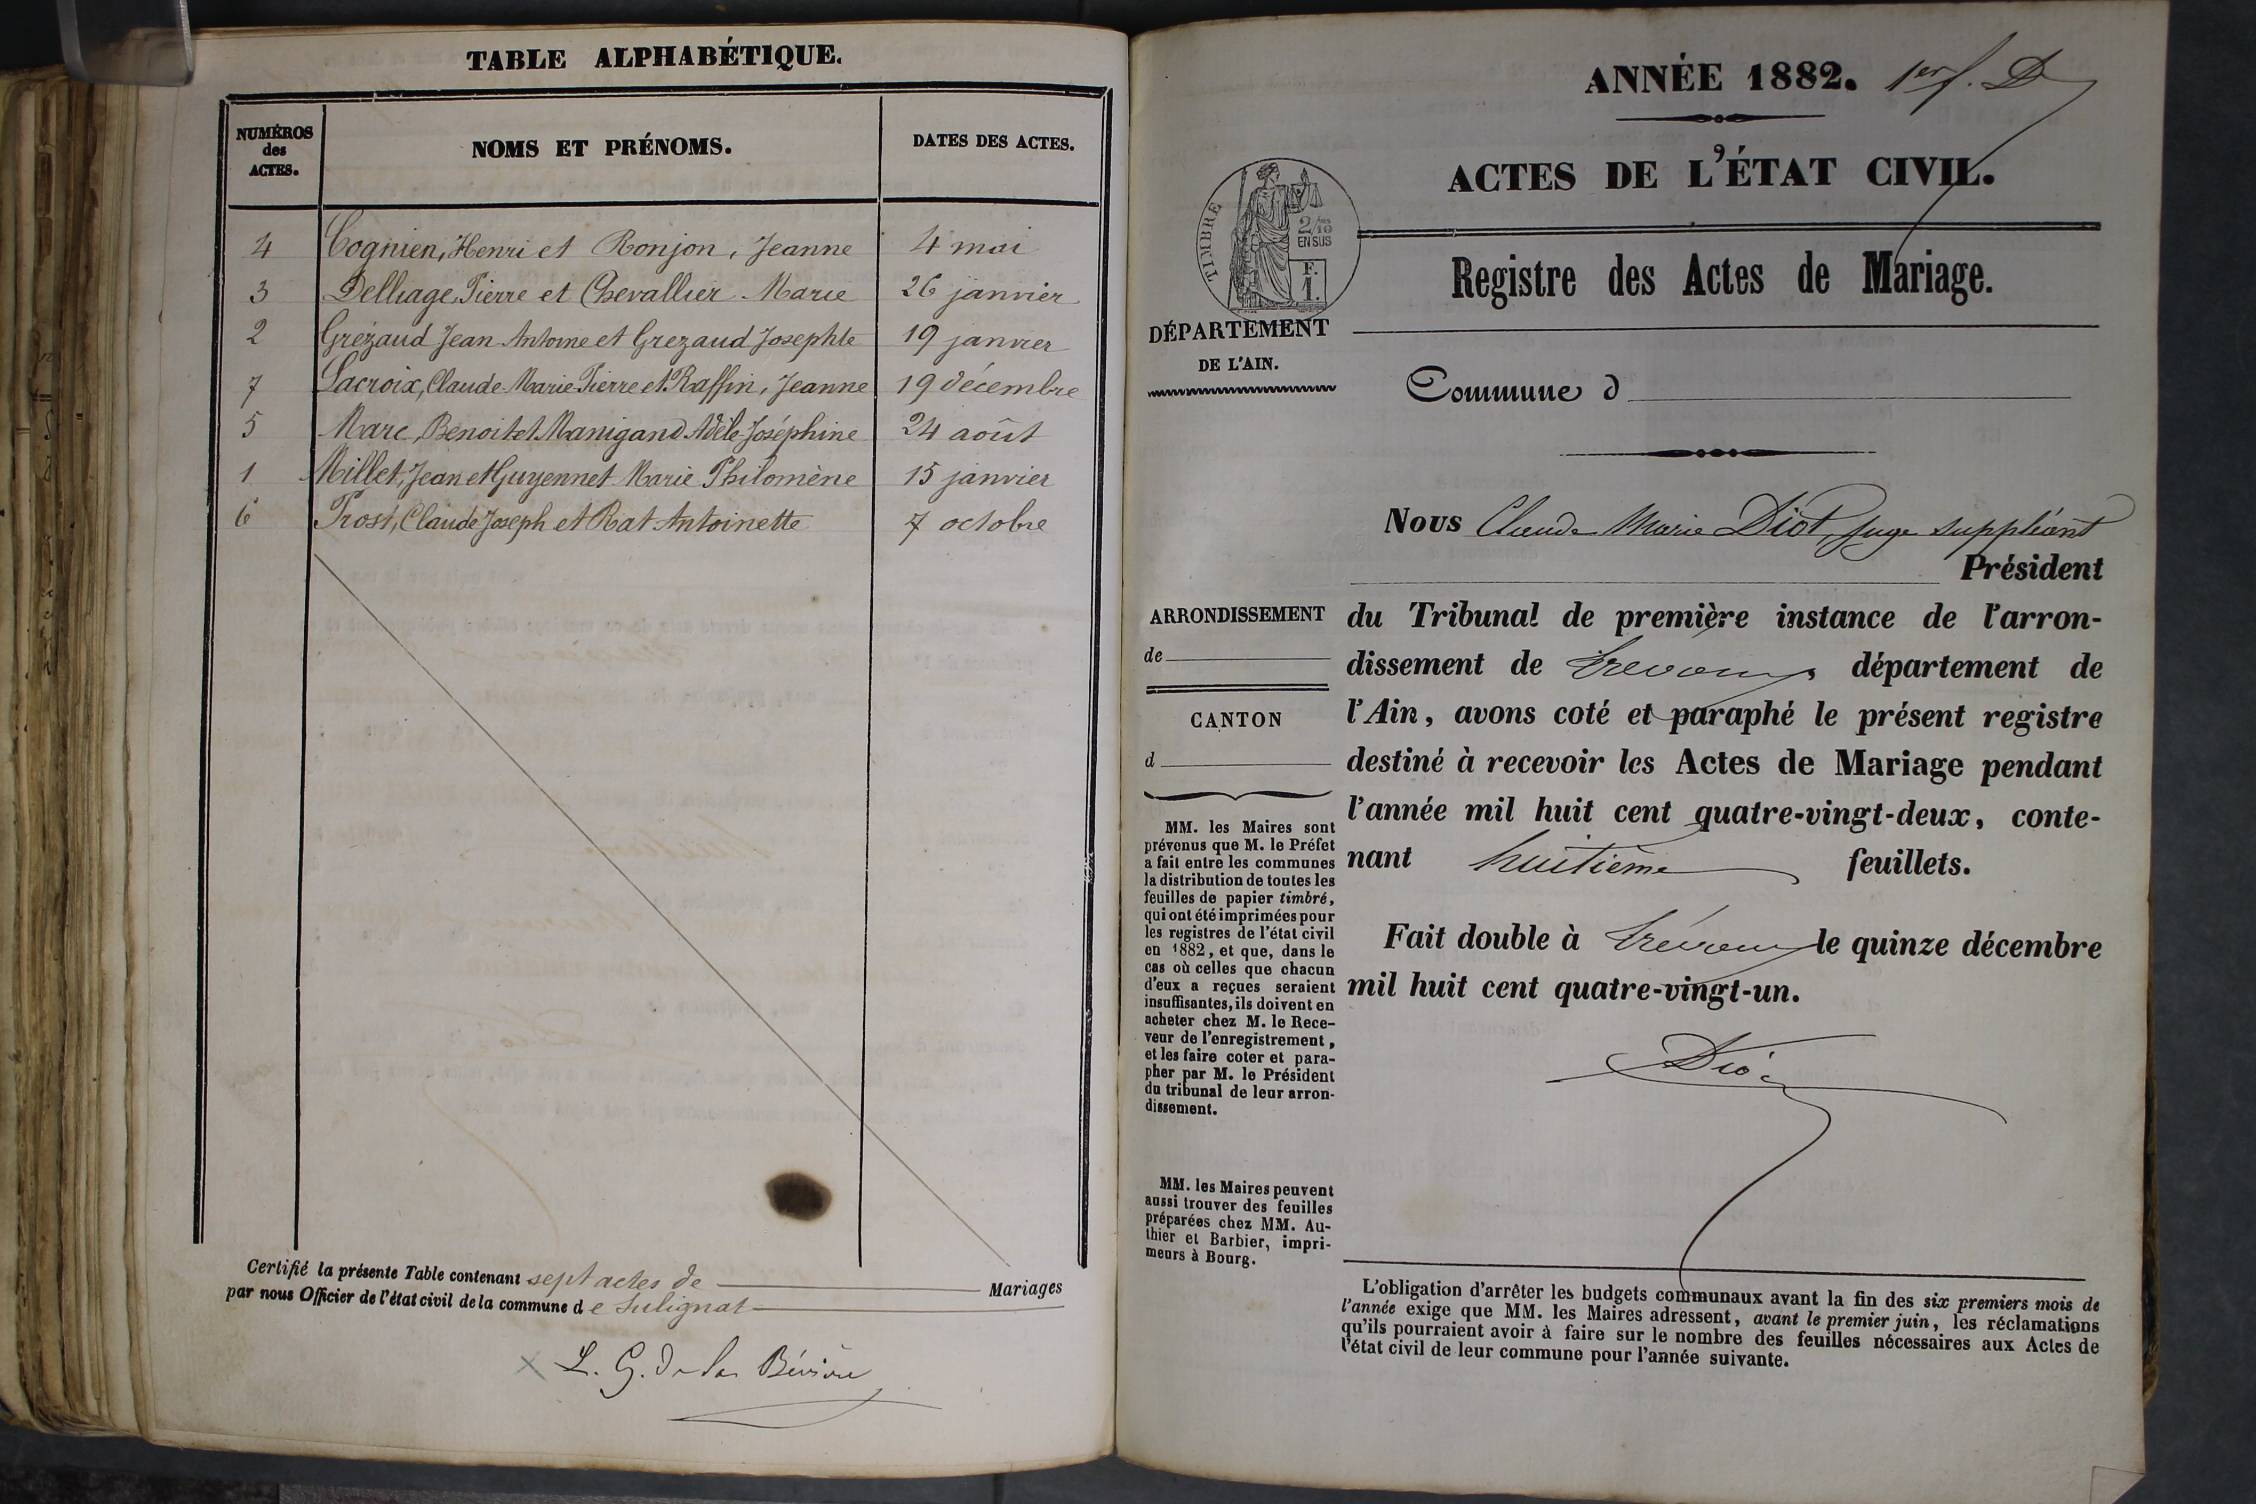 TABLE ALPHABÉTIQUE.
NUMÉROS
des
ACTES.
NOMS ET PRÉNOMS.
DATES DES ACTES.
4 Cognien, Henri et Ronjon, Jeanne 4 mai
3 Delliage, Pierre et Chevallier Marie 26 janvier
2 Grézaud Jean Antoine et Grezaud Josephte 19 janvier
7 Lacroix, Claude-Marie-Pierre et Raffin, Jeanne 19 décembre
5 Marc, Benoit et Manigand Adèle Joséphine 24 août
1 Millet, Jean et Guyennet Marie Philomène 15 janvier
6 Prost, Claude Joseph et Rat Antoinette 7 octobre
Certifié la présente Table contenant sept actes de Mariages
par nous Officier de l'état civil de la commune de Sulignat
L. G. de la Bévière
ANNÉE 1882. 1er f. D
ACTES DE L'ÉTAT CIVIL.
TIMBRE
2/10
EN SUS
F.
1.
Registre des Actes de Mariage.
DÉPARTEMENT
DE L'AIN.
Commune d
Nous Claude Marie Diot, juge suppléant
Président
du Tribunal de première instance de l'arron-
dissement de Trévoux, département de
l'Ain, avons coté et paraphé le présent registre
destiné à recevoir les Actes de Mariage pendant
l'année mil huit cent quatre-vingt-deux, conte-
nant huitième feuillets.
Fait double à Trévoux le quinze décembre
mil huit cent quatre-vingt-un.
Diot
ARRONDISSEMENT
de
CANTON
d
MM. les Maires sont
prévenus que M. le Préfet
a fait entre les communes
la distribution de toutes les
feuilles de papier timbré,
qui ont été imprimées pour
les registres de l'état civil
en 1882, et que, dans le
cas où celles que chacun
d'eux a reçues seraient
insuffisantes, ils doivent en
acheter chez M. le Rece-
veur de l'enregistrement,
et les faire coter et para-
pher par M. le Président
du tribunal de leur arron-
dissement.
MM. les Maires peuvent
aussi trouver des feuilles
préparées chez MM. Au-
thier et Barbier, impri-
meurs à Bourg.
L'obligation d'arrêter les budgets communaux avant la fin des six premiers mois de
l'année exige que MM. les Maires adressent, avant le premier juin, les réclamations
qu'ils pourraient avoir à faire sur le nombre des feuilles nécessaires aux Actes de
l'état civil de leur commune pour l'année suivante.